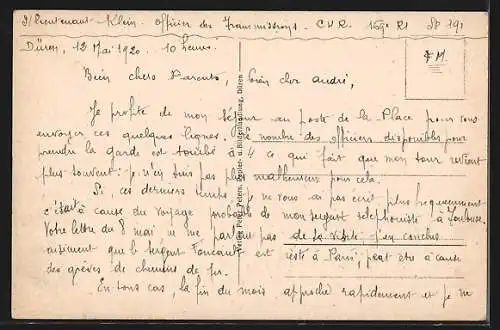 S/Lieutenant Klein. Officier des Transmissions. C.H.R. 169e RI SP 191
Düren, 12 Mai 1920. 10 heures.
F.M.
Bien chers Parents, bien cher André,
Je profite de mon séjour au poste de la Place pour vous
envoyer ces quelques lignes. Le nombre des officiers disponibles pour
prendre la garde est tombé à 4 ce qui fait que mon tour revient
plus souvent: je n'en suis pas plus malheureux pour cela.
Si, ces derniers temps, je ne vous ai pas écrit plus fréquemment
c'était à cause du voyage probable de mon sergent téléphoniste à Toulouse.
Votre lettre du 8 mai ne me parlant pas de la visite j'en conclus
aisément que le sergent Foucault est resté à Paris, peut être à cause
des grèves de chemins de fer.
En tous cas, la fin du mois approche rapidement et je me
Peters, Papier- u. Bilderhandlung, Düren